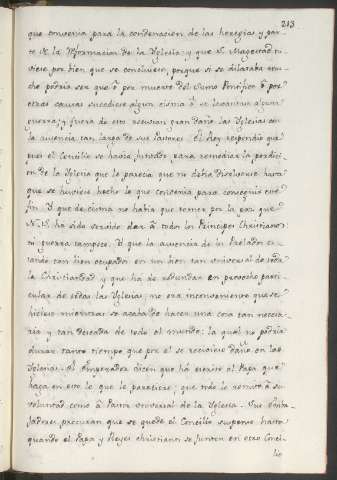 213
que convenia para la condenacion de las heregias y par-
te de la Reformacion de la Yglesia, y que S. Magestad tu-
viese por bien, que se concluiese, porque si se dilatara mu-
cho podria ser que ô por muerte del Sumo Pontifice ô por
otras causas sucediese algun cisma ô se levantase alguna
guerra; y fuera de esto recevian gran daño las Yglesias con
la ausencia tan larga de sus Pastores. El Rey respondio que
pues el Concilio se havia juntado para remediar la perdicion
de la Yglesia que le parecia que no devia disolverse hasta
que se huviese hecho lo que convenia para conseguir este
fin. Y que de cisma no habia que temer por la paz que
N. S. ha sido servido dar â todos los Principes Christianos
ni guerra tampoco. Y que la ausencia de los Prelados es-
tando tan bien ocupados en un bien tan universal de toda
la Christiandad y que há de redundar en provecho parti-
cular de todas las Yglesias, no era inconveniente que se
hiciese mientras se acababa de hacer una cosa tan necesa-
ria y tan deseada de todo el mundo: la qual no podria
durar tanto tiempo que por él se reciviese daño en las
Yglesias. El Emperador dicen que há escrito al Papa que
haga en esto lo que le pareciere, que todo lo remite â su
voluntad como â Pastor universal de la Yglesia. Sus Emba-
jadores procuran que se quede el Concilio suspenso hasta
quando el Papa y Reyes christianos se junten en otro Conci-
lio